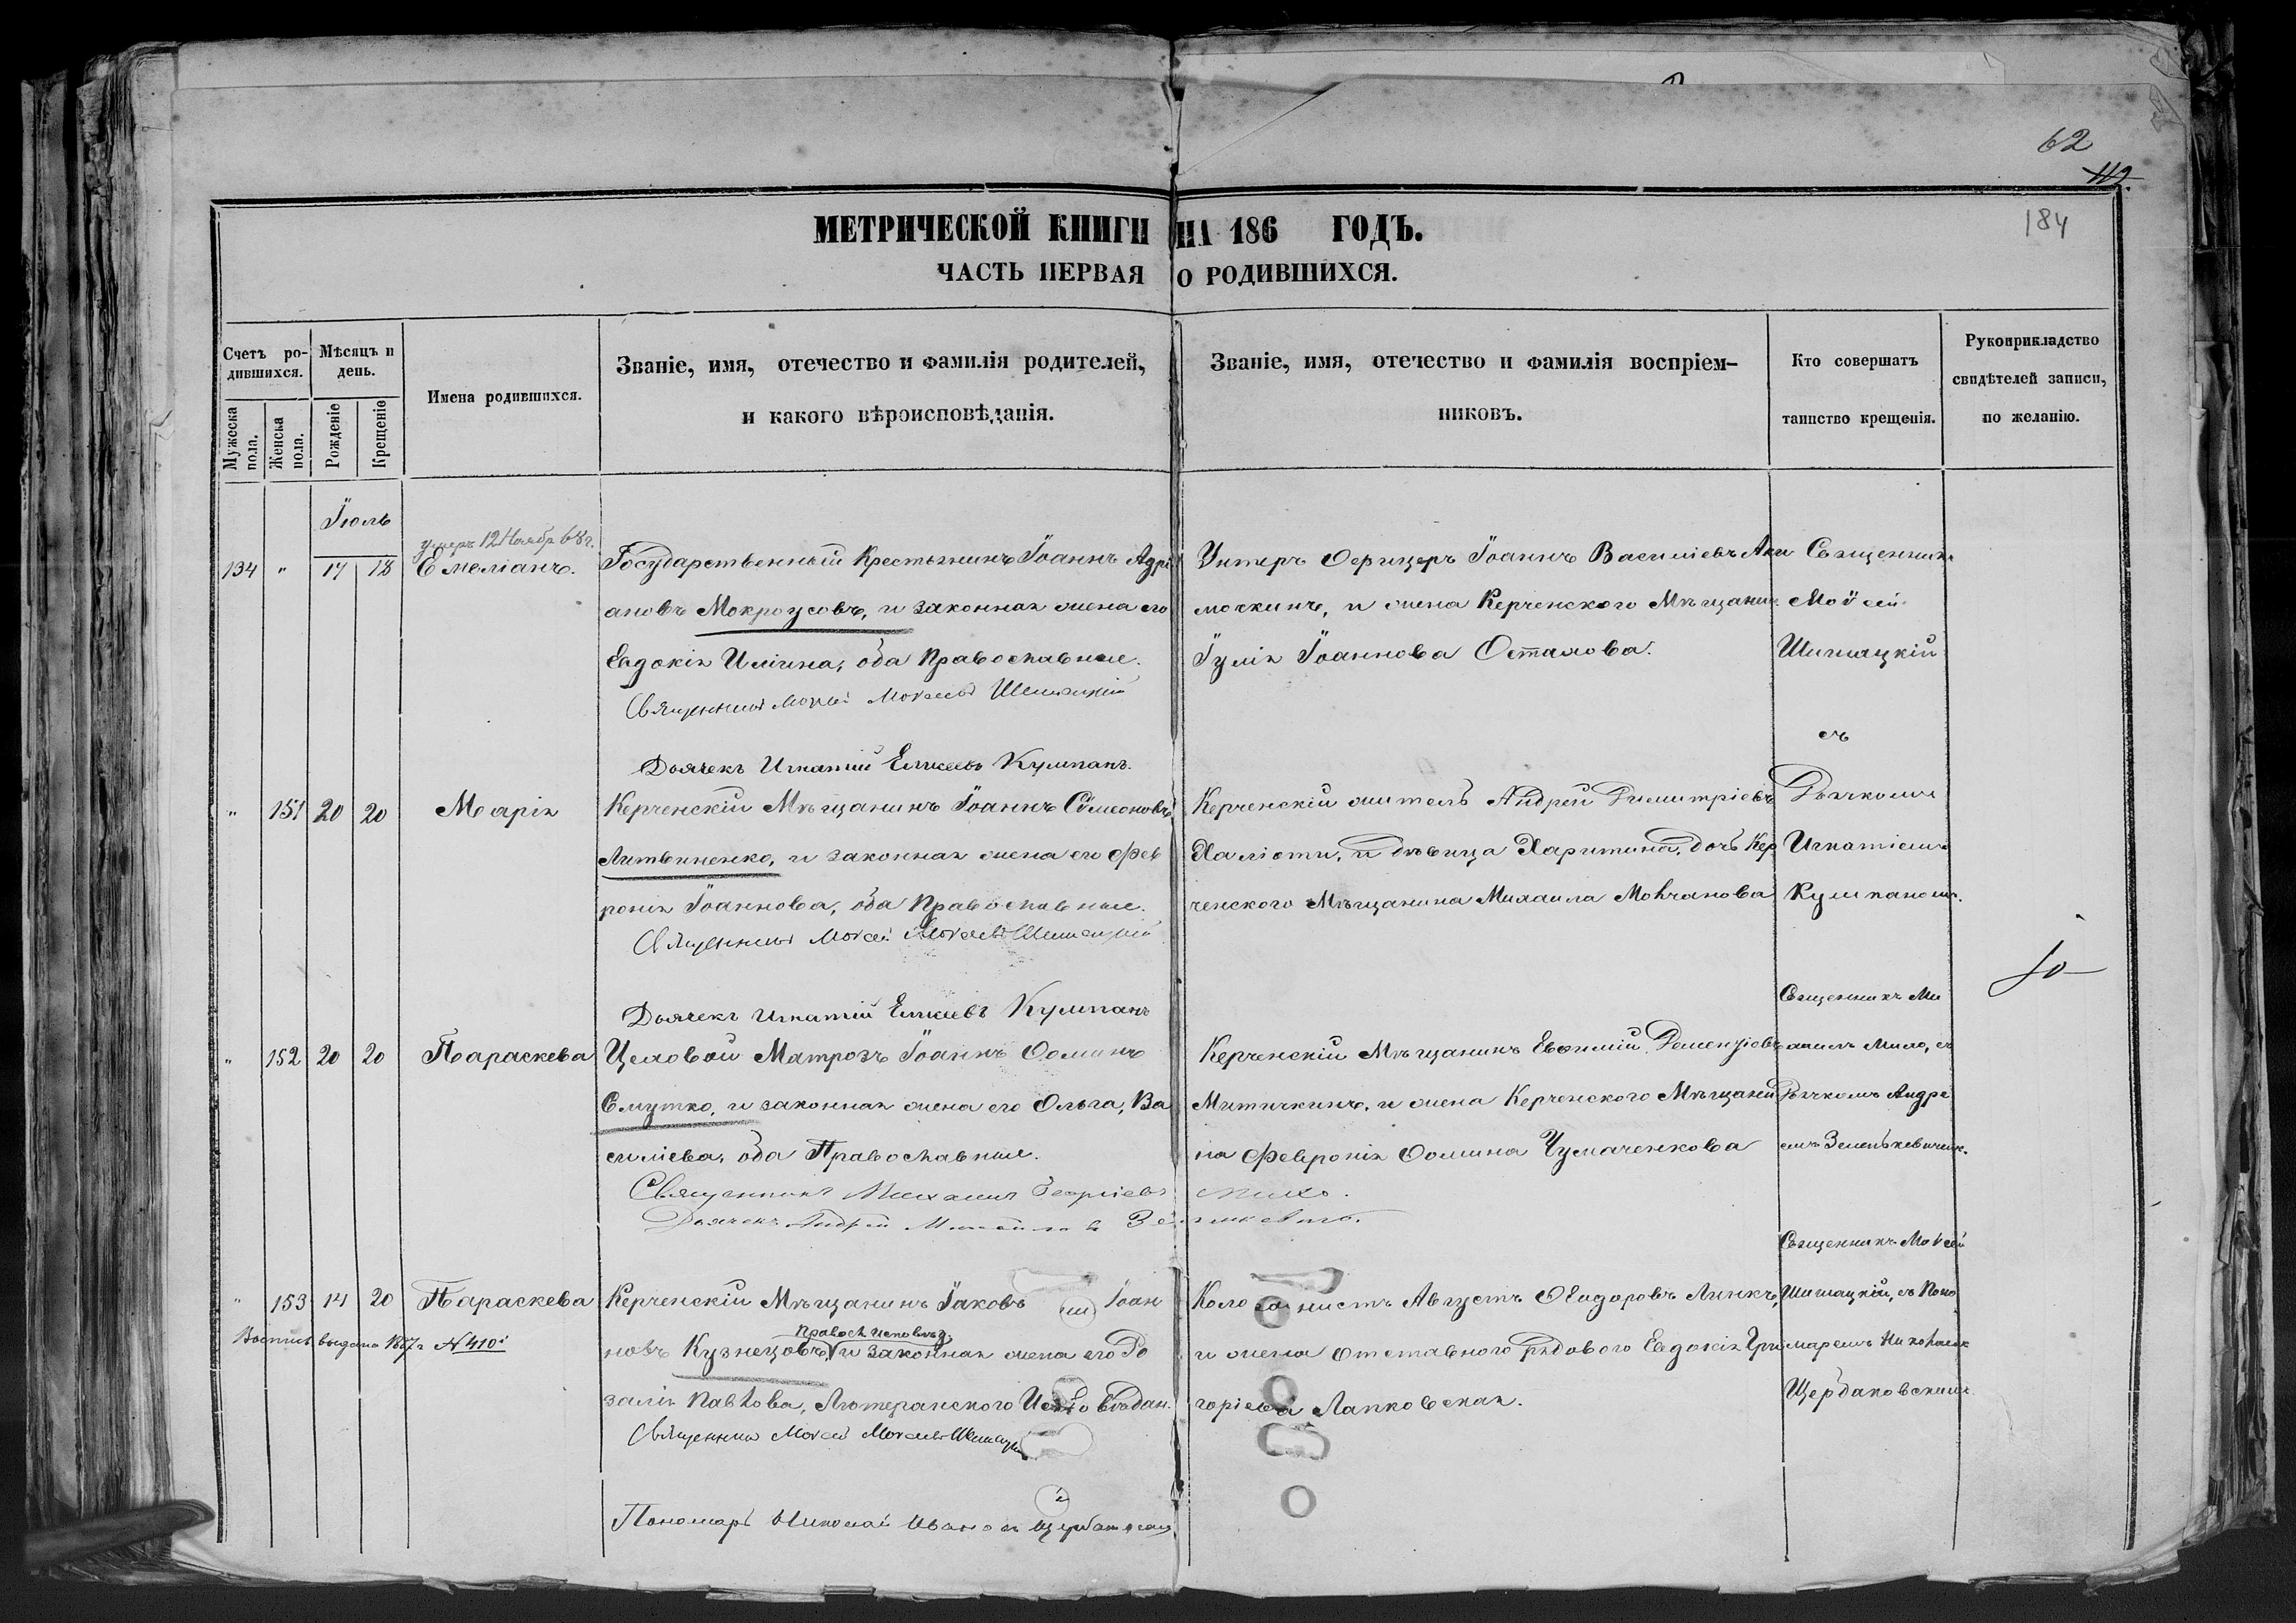 62
112.
184
МЕТРИЧЕСКОЙ КНИГИ НА 186 ГОДЪ.
ЧАСТЬ ПЕРВАЯ О РОДИВШИХСЯ.
Счетъ ро-
дившихся.
Мужеска
пола.
Женска
пола.
Мѣсяцъ и
день.
Рожденіе
Крещеніе
Имена родившихся.
Званіе, имя, отечество и фамилія родителей,
и какого вѣроисповѣданія.
Званіе, имя, отечество и фамилія воспріем-
никовъ.
Кто совершатъ
таинство крещенія.
Рукоприкладство
свидѣтелей записи,
по желанію.
Іюль
умеръ 12 Ноября 68 г.
134 " 17 18 Емеліанъ.
Государственный Крестьянинъ Іоаннъ Адрі
ановъ Мокроусовъ, и законная жена его
Евдокія Иліина, оба Православные.
Священникъ Моѵсей Моѵсеевъ Шишацкій
Дьячекъ Игнатій Елисеевъ Кулпанъ.
Унтеръ Офицеръ Іоаннъ Василіевъ
и жена Керченского Мѣщанин
Іулія Іоаннова Осталова.
Священникъ
Моѵсей
Шишацкій
съ
Дьячкомъ
Игнатіемъ
Кулпаномъ.
" 151 20 20 Марія
Керченскій Мѣщанинъ Іоаннъ Сѵмеоновъ
Литвиненко, и законная жена его Фев
ронія Іоаннова, оба Православные.
Священникъ Моѵсей Моѵсеевъ Шишацкій
Дьячекъ Игнатій Елисеевъ Кулпанъ
Керченскій житель Андрей Димитріевъ
Халіоти, и дѣвица Харитина, дочь Кер
ченского Мѣщанина Михаила Молчанова
" 152 20 20 Параскева
Цеховой Матрозъ Іоаннъ Ѳоминъ
Смутко, и законная жена его Ольга, Ва
силіева, оба Православные.
Священникъ Михаилъ Георгіевъ Мило.
Дьячекъ Андрей Михайловъ Зеленкевичъ.
Керченскій Мѣщанинъ Евѳимій
Митичкинъ, и жена Керченского Мѣщани
на Февронія Ѳомина Чумаченкова
Священникъ Ми
хаилъ Мило, съ
Дьячкомъ Андре
емъ Зеленькевичемъ.
" 153 14 20 Параскева
Выпись выдана 1887 г. № 410
Керченскій Мѣщанинъ Іаковъ Іоан
Правосл. исповѣд.
новъ Кузнецовъ, и законная жена его Ро
залія Павлова, Лютеранского Исповѣдан.
Священникъ Моѵсей Моѵсеевъ Шишацкій
Пономарь Николай Ивановъ Щербаковскій
Колонистъ Августъ Ѳеодоровъ Линкъ,
и жена отставного рядового Евдокія Гри
горіева Лапковская.
Священникъ Моѵсей
Шишацкій, съ Поно
маремъ Николаемъ
Щербаковскимъ